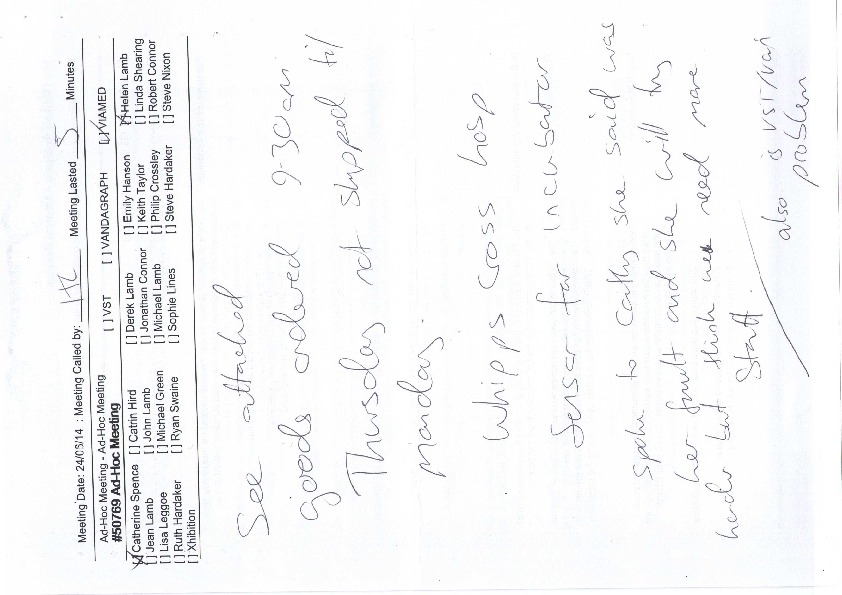 Meeting Date: 24/06/14 : Meeting Called by: HL Meeting Lasted 5 Minutes
Ad-Hoc Meeting - Ad-Hoc Meeting [ ] VST [ ] VANDAGRAPH [✓] VIAMED
#50769 Ad-Hoc Meeting
[✓] Catherine Spence [ ] Catrin Hird [ ] Derek Lamb [ ] Emily Hanson [✓] Helen Lamb
[ ] Jean Lamb [ ] John Lamb [ ] Jonathan Connor [ ] Keith Taylor [ ] Linda Shearing
[ ] Lisa Leggoe [ ] Michael Green [ ] Michael Lamb [ ] Philip Crossley [ ] Robert Connor
[ ] Ruth Hardaker [ ] Ryan Swaine [ ] Sophie Lines [ ] Steve Hardaker [ ] Steve Nixon
[ ] Xhibition
See attached
goods ordered 9-30am
Thursday not shipped til
monday.
Whipps Cross hosp
Sensor for Incubator
Spoke to Cathy she said was
her fault and she will try
harder but think need more
Staff.
also is VST/Van
problem